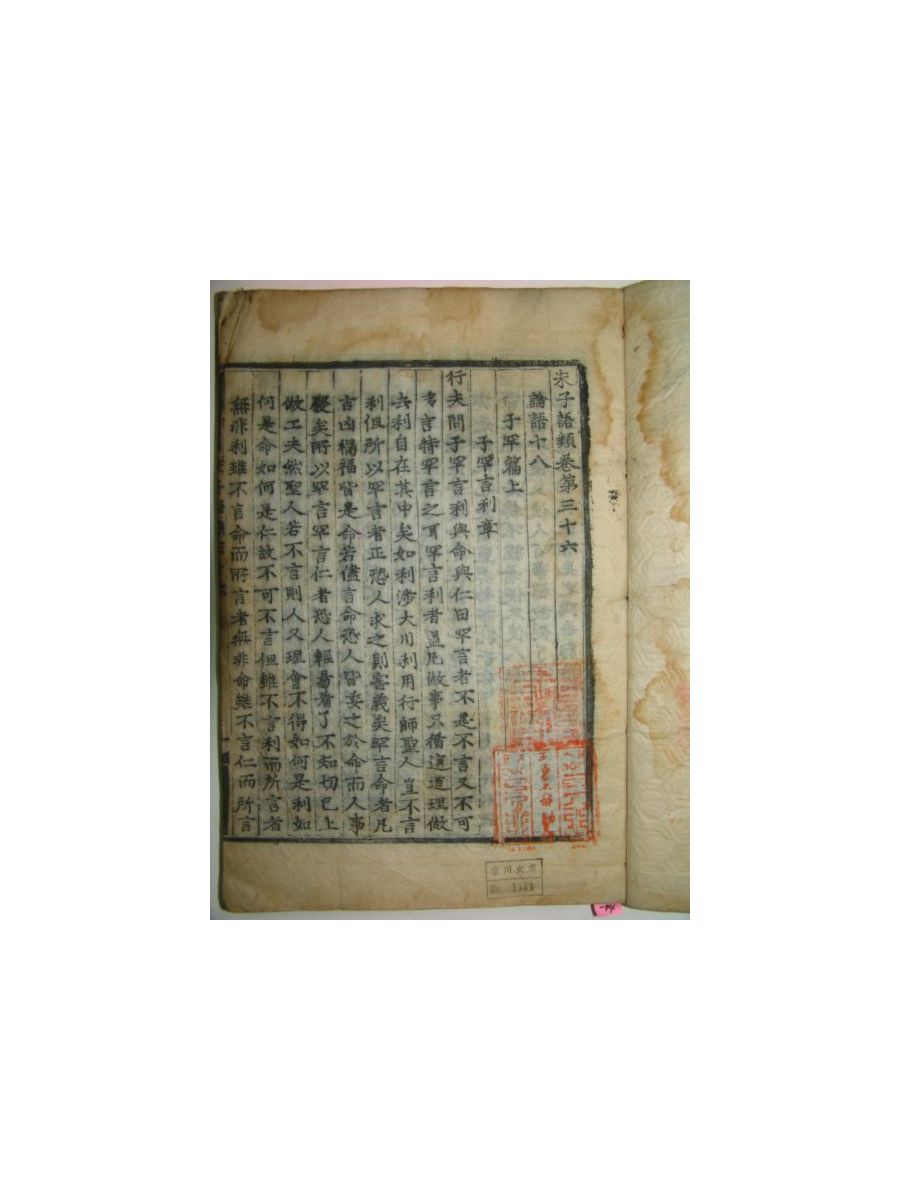 朱子語類卷第三十六
論語十八
子罕篇上
子罕言利章
行夫問子罕言利與命與仁曰罕言者不是不言又不可
多言特罕言之耳罕言利者盖凡做事只循這道理做
去利自在其中矣如利涉大川利用行師聖人豈不言
利但所以罕言者正恐人求之則害義矣罕言命者凡
吉凶禍福皆是命若儘言命恐人皆委之於命而人事
廢矣所以罕言罕言仁者恐人輕易看了不知切已上
做工夫然聖人若不言則人又理會不得如何是利如
何是命如何是仁故不可不言但雖不言利而所言者
無非利雖不言命而所言者無非命雖不言仁而所言
川文庫
No. 1343
-44